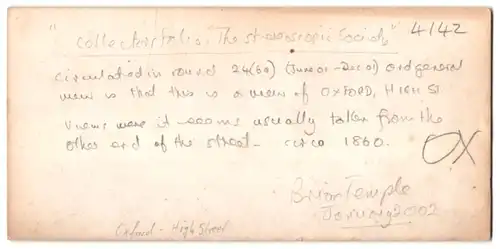 "Collectors folio. The stereoscopic Society" 4/42
circulated in round 24(60) (June 01 - Dec 01) and general
view is that this is a view of OXFORD, HIGH St
Views were it seems usually taken from the
other end of the street - circa 1860.
OX
Brian Temple
January 2002
Oxford - High Street